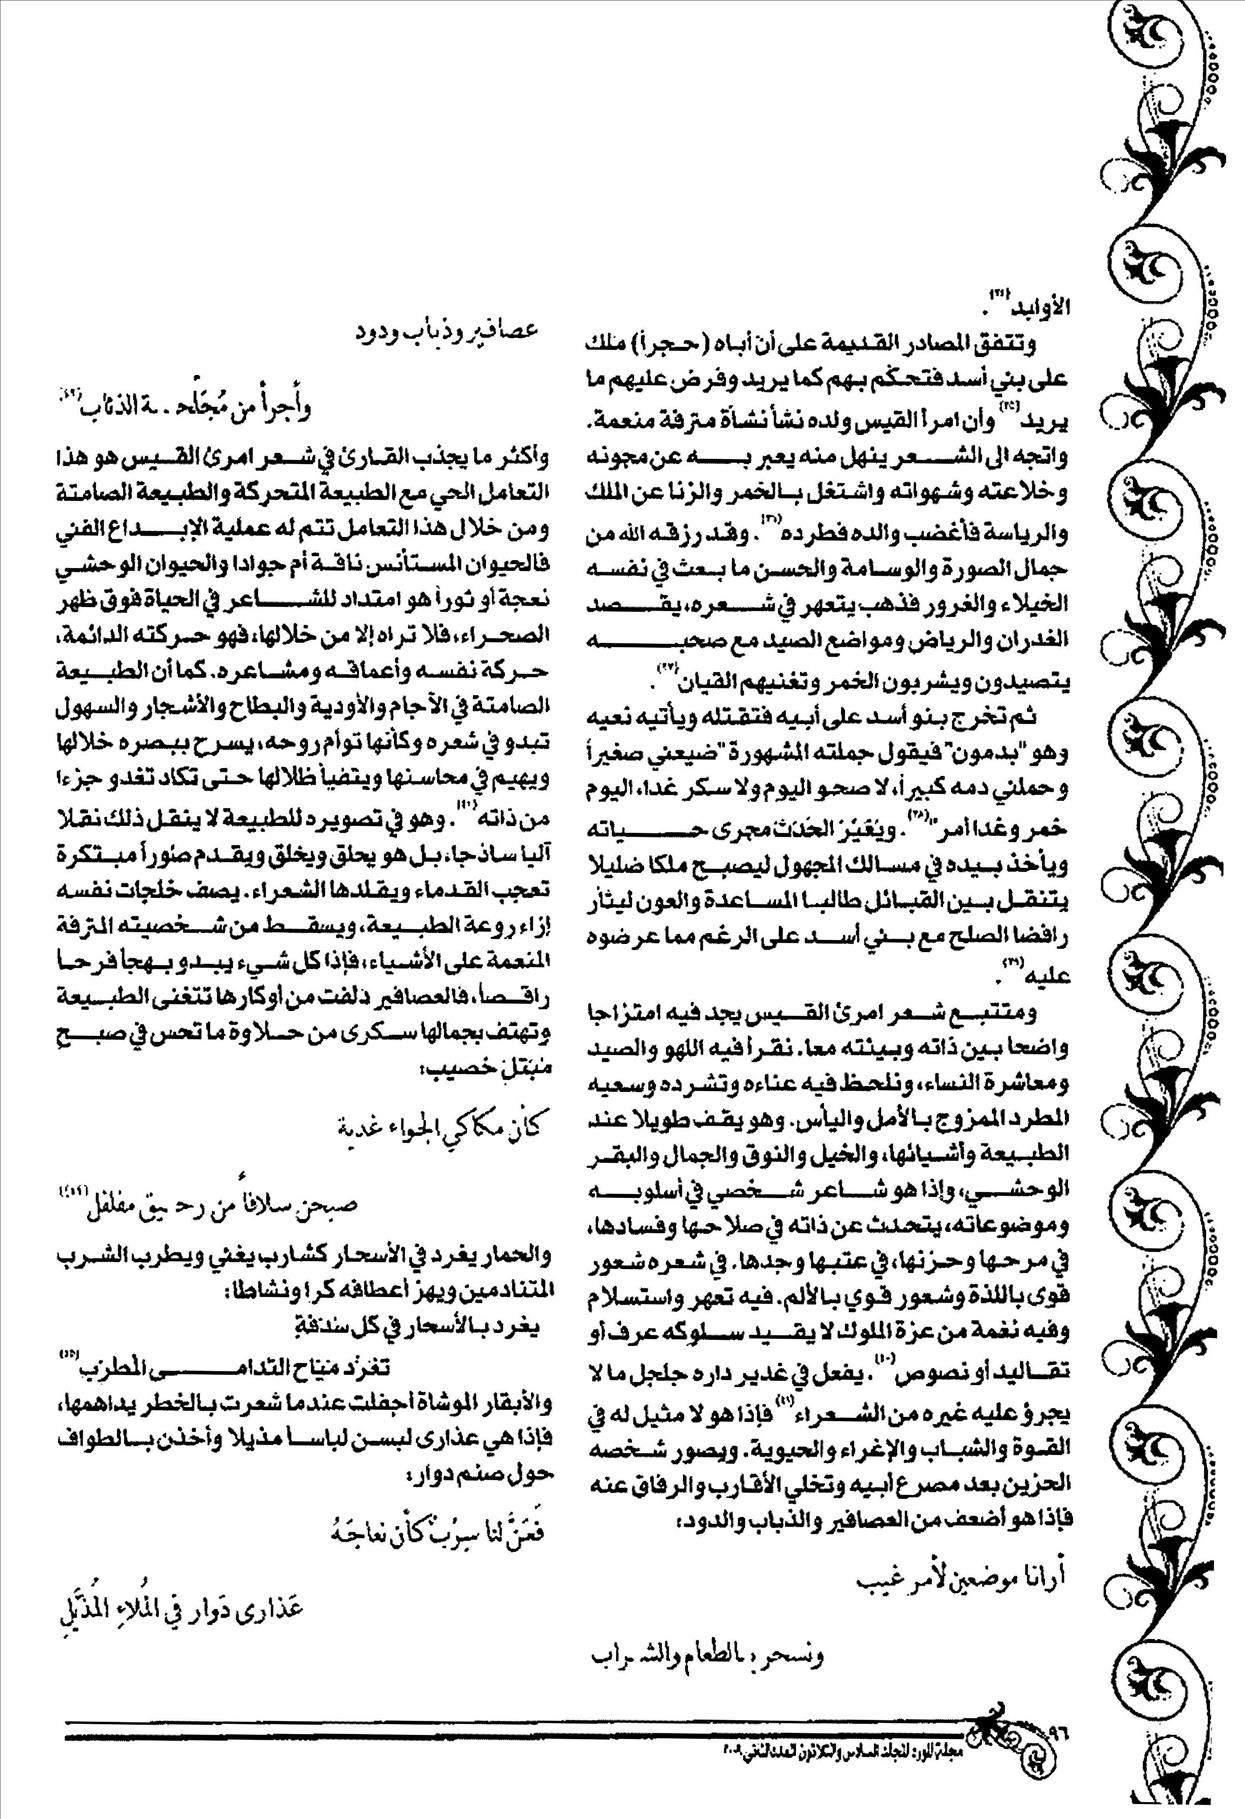 الأوابد(٣٤).
وتتفق المصادر القديمة على أن أباه (حجراً) ملك
على بني أسد فتحكّم بهم كما يريد وفرض عليهم ما
يريد(٣٥) وأن امرأ القيس ولده نشأ نشأة مترفة منعمة.
واتجه الى الشعر ينهل منه يعبر به عن مجونه
وخلاعته وشهواته واشتغل بالخمر والزنا عن الملك
والرياسة فأغضب والده فطرده(٣٦). وقد رزقه الله من
جمال الصورة والوسامة والحسن ما بعث في نفسه
الخيلاء والغرور فذهب يتعهر في شعره، يقصد
الغدران والرياض ومواضع الصيد مع صحبه
يتصيدون ويشربون الخمر وتغنيهم القيان(٣٧).
ثم تخرج بنو أسد على أبيه فتقتله ويأتيه نعيه
وهو "بدمون" فيقول جملته المشهورة "ضيعني صغيراً
وحملني دمه كبيراً، لا صحو اليوم ولا سكر غدا، اليوم
خمر وغدا أمر"(٣٨). ويُغَيّر الحَدَث مجرى حياته
ويأخذ بيده في مسالك المجهول ليصبح ملكا ضليلا
يتنقل بين القبائل طالبا المساعدة والعون ليثأر
رافضا الصلح مع بني أسد على الرغم مما عرضوه
عليه(٣٩).
ومتتبع شعر امرئ القيس يجد فيه امتزاجا
واضحا بين ذاته وبيئته معا. نقرأ فيه اللهو والصيد
ومعاشرة النساء، ونلحظ فيه عناءه وتشرده وسعيه
المطرد الممزوج بالأمل واليأس. وهو يقف طويلا عند
الطبيعة وأشيائها، والخيل والنوق والجمال والبقر
الوحشي، وإذا هو شاعر شخصي في أسلوبه
وموضوعاته، يتحدث عن ذاته في صلاحها وفسادها،
في مرحها وحزنها، في عتبها وجدها. في شعره شعور
قوى باللذة وشعور قوي بالألم. فيه تعهر واستسلام
وفيه نغمة من عزة الملوك لا يقيد سلوكه عرف أو
تقاليد أو نصوص(٤٠). يفعل في غدير داره جلجل ما لا
يجرؤ عليه غيره من الشعراء(٤١) فإذا هو لا مثيل له في
القوة والشباب والإغراء والحيوية. ويصور شخصه
الحزين بعد مصرع أبيه وتخلي الأقارب والرفاق عنه
فإذا هو أضعف من العصافير والذباب والدود:
أرانا موضعين لأمر غيب
ونسحر بالطعام والشراب
عصافير وذباب ودود
وأجرأ من مُجَلّحة الذئاب(٤٢).
وأكثر ما يجذب القارئ في شعر امرئ القيس هو هذا
التعامل الحي مع الطبيعة المتحركة والطبيعة الصامتة
ومن خلال هذا التعامل تتم له عملية الإبداع الفني
فالحيوان المستأنس ناقة أم جوادا والحيوان الوحشي
نعجة أو ثوراً هو امتداد للشاعر في الحياة فوق ظهر
الصحراء، فلا تراه إلا من خلالها، فهو حركته الدائمة،
حركة نفسه وأعماقه ومشاعره. كما أن الطبيعة
الصامتة في الآجام والأودية والبطاح والأشجار والسهول
تبدو في شعره وكأنها توأم روحه، يسرح ببصره خلالها
ويهيم في محاسنها ويتفيأ ظلالها حتى تكاد تغدو جزءا
من ذاته(٤٣). وهو في تصويره للطبيعة لا ينقل ذلك نقلا
آليا ساذجا، بل هو يحلق ويخلق ويقدم صوراً مبتكرة
تعجب القدماء ويقلدها الشعراء. يصف خلجات نفسه
إزاء روعة الطبيعة، ويسقط من شخصيته المترفة
المنعمة على الأشياء، فإذا كل شيء يبدو بهجا فرحا
راقصا، فالعصافير دلفت من أوكارها تتغنى الطبيعة
وتهتف بجمالها سكرى من حلاوة ما تحس في صبح
مُبَتل خصيب:
كأن مكاكي الجواء غدية
صبحن سلافاً من رحيق مفلفل(٤٤)
والحمار يغرد في الأسحار كشارب يغني ويطرب الشرب
المتنادمين ويهز أعطافه كرا ونشاطا:
يغرد بالأسحار في كل سدفة
تغرُّد ميّاح الندامى المطرب(٤٥)
والأبقار الموشاة أجفلت عندما شعرت بالخطر يداهمها،
فإذا هي عذارى لبسن لباسا مذيلا وأخذن بالطواف
حول صنم دوار:
فَعَنَّ لنا سِرْبٌ كأن نعاجَهُ
عَذارى دَوار في المُلاءِ المُذَيَّلِ
٩٦
مجلة المورد المجلد السادس والثلاثون العدد الثاني ٢٠٠٩